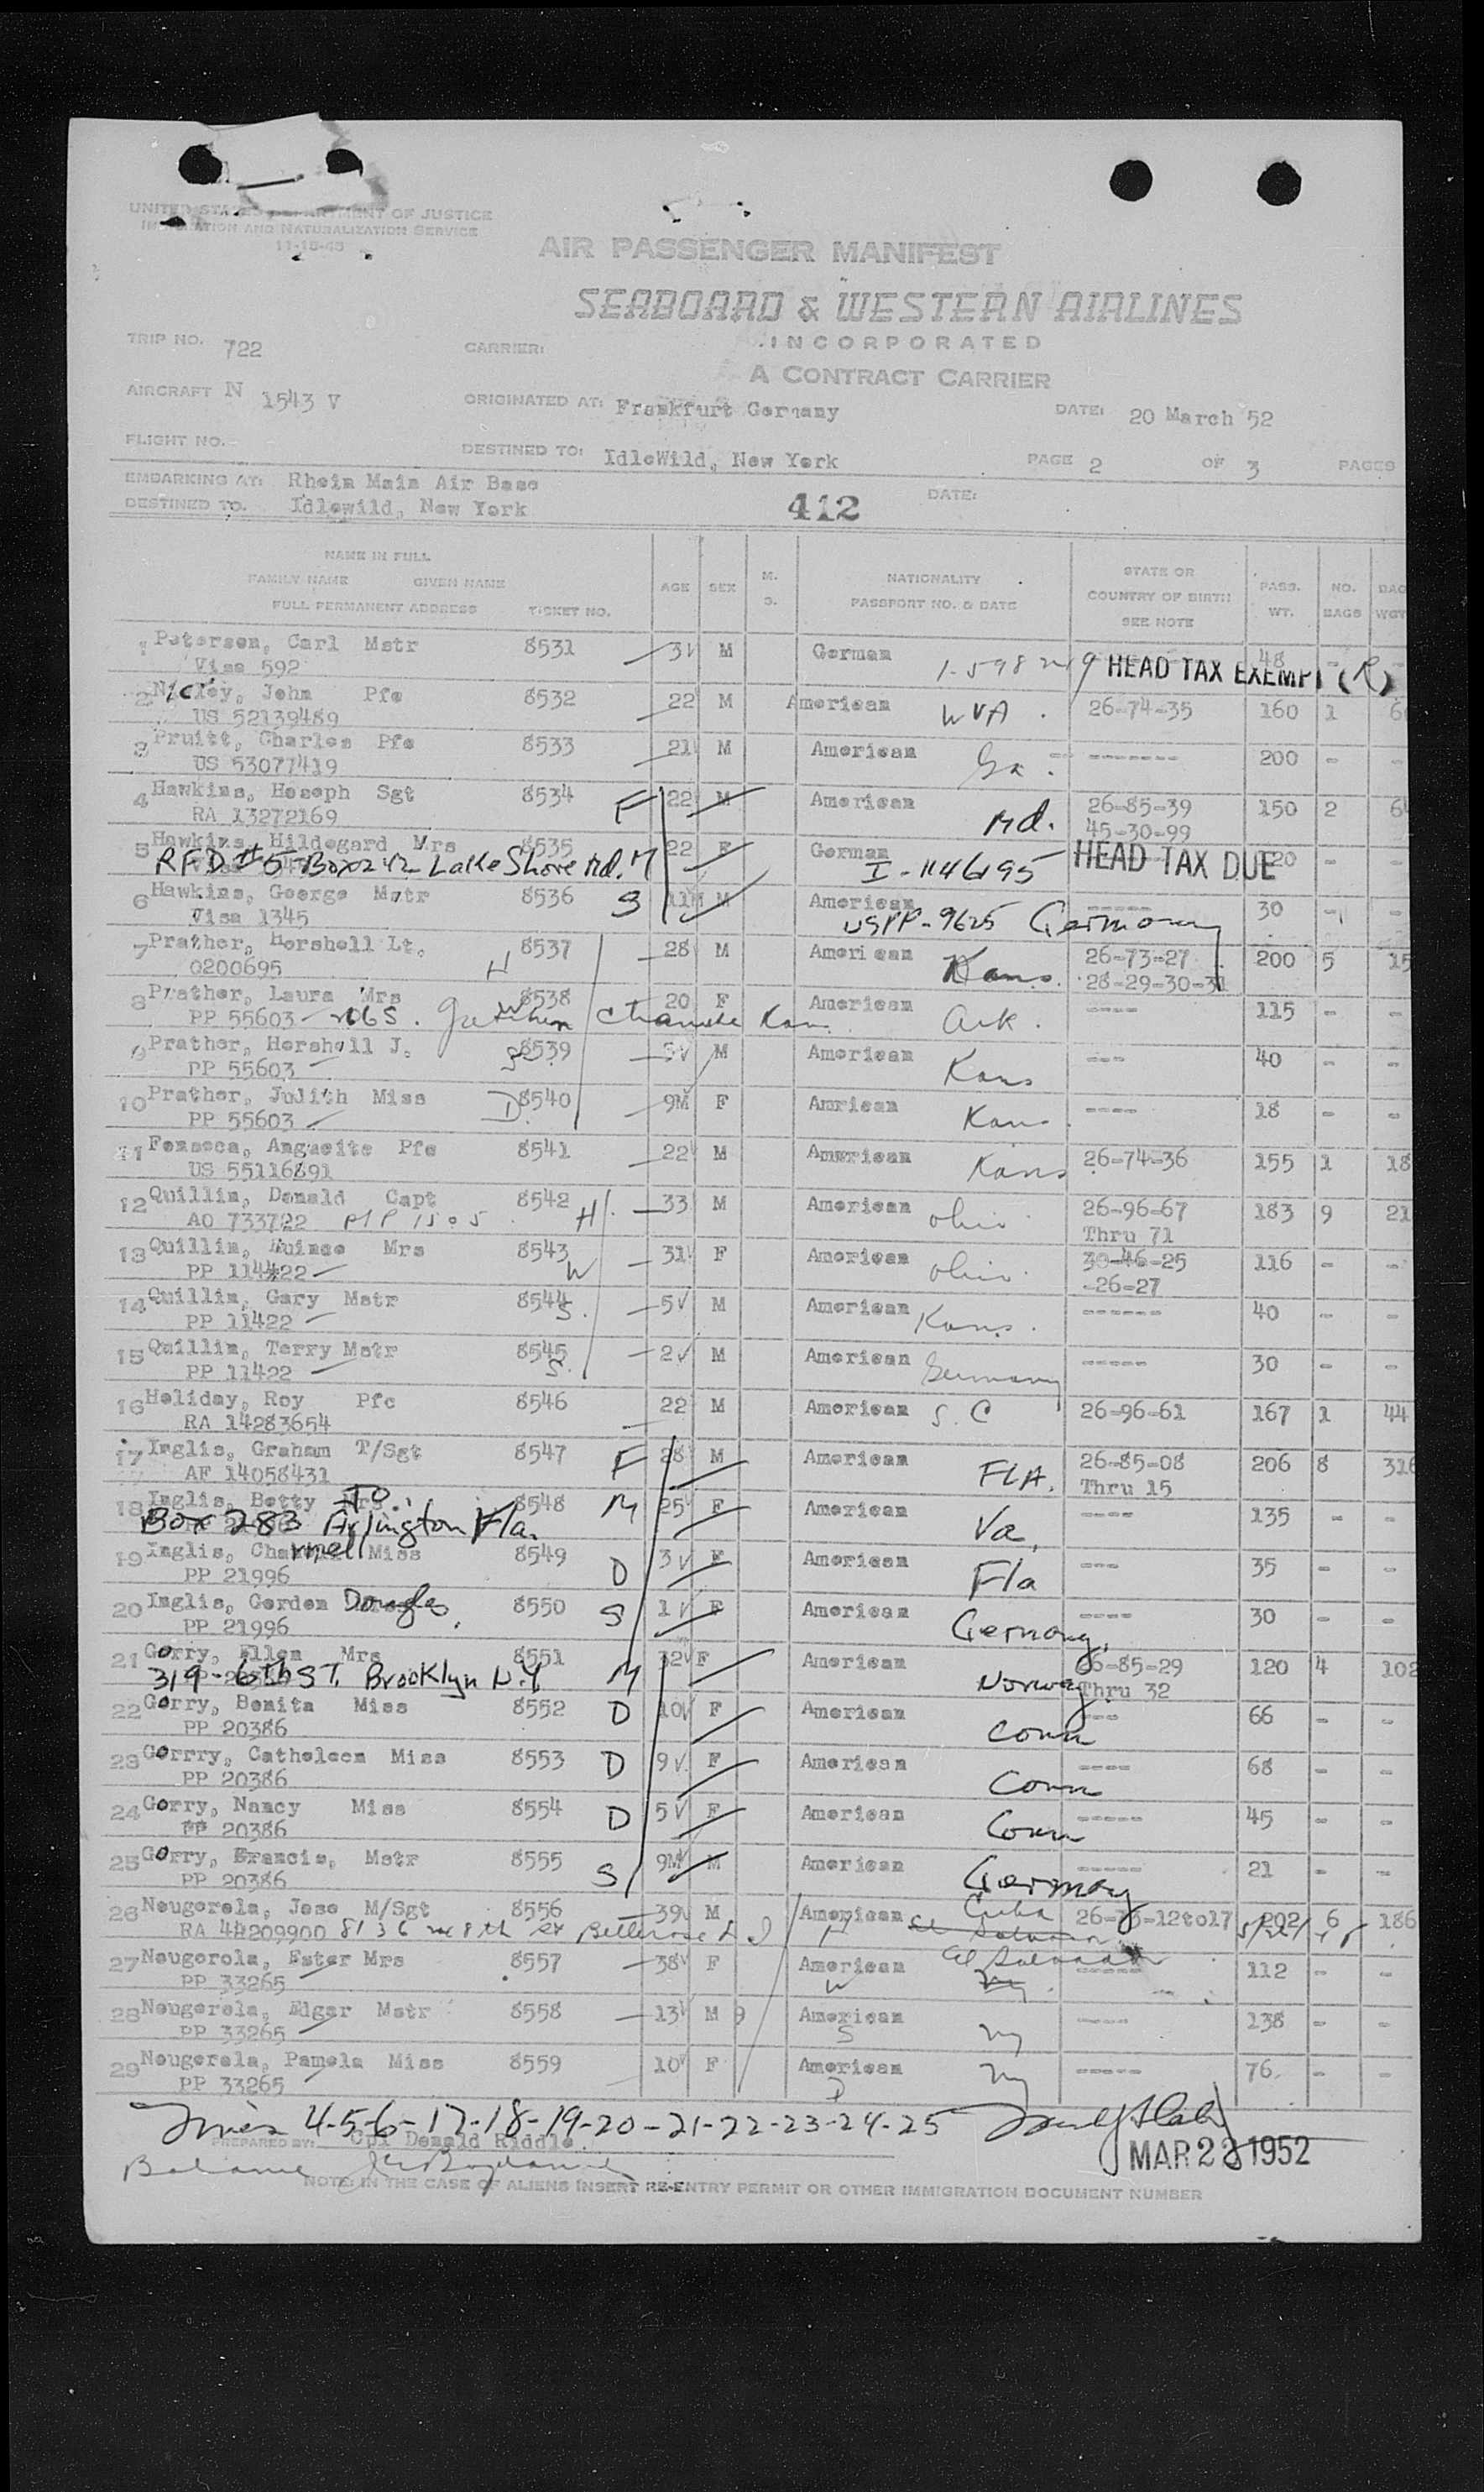 UNITED STATES DEPARTMENT OF JUSTICE
IMMIGRATION AND NATURALIZATION SERVICE
11-18-48
AIR PASSENGER MANIFEST
SEABOARD & WESTERN AIRLINES
INCORPORATED
A CONTRACT CARRIER
TRIP NO. 722 CARRIER:
AIRCRAFT N 1543 V ORIGINATED AT: Frankfurt Germany DATE: 20 March 52
FLIGHT NO. DESTINED TO: IdleWild, New York PAGE 2 OF 3 PAGES
EMBARKING AT: Rhein Main Air Base DATE:
DESTINED TO. Idlewild, New York 412
NAME IN FULL
FAMILY NAME GIVEN NAME
FULL PERMANENT ADDRESS TICKET NO. AGE SEX M. S. NATIONALITY PASSPORT NO. & DATE STATE OR COUNTRY OF BIRTH SEE NOTE PASS. WT. NO. BAGS BAG WGT
1 Peterson, Carl Mstr 8531 3 M German 48 -
Visa 592 HEAD TAX EXEMPT (R)
2 Nicley, John Pfc 8532 22 M American WVA. 26-74-35 160 1 6
US 52139489
3 Pruitt, Charles Pfc 8533 21 M American Ga. ------- 200 - -
US 53077419
4 Hawkins, Hoseph Sgt 8534 F 22 M American Md. 26-85-39 150 2 6
RA 13272169 45-30-99
5 Hawkins, Hildegard Mrs 8535 22 F German HEAD TAX DUE 120 - -
RFD #5-Box 242 Lake Shore Md. M I-1146195
6 Hawkins, George Mstr 8536 S 11M M American ----- 30 - -
Visa 1345 USPP-9625 Germany
7 Prather, Hershell Lt. 8537 H 28 M American Kans. 26-73-27 200 5 15
0200695 28-29-30-31
8 Prather, Laura Mrs 8538 W 20 F American Ark. ---- 115 - -
PP 55603 Chanute Kan.
9 Prather, Hershell J. 8539 S M American Kans --- 40 - -
PP 55603
10 Prather, Julith Miss 8540 D. 9M F Amrican Kans. ---- 18 - -
PP 55603
11 Fonseca, Angueite Pfc 8541 22 M American Kans 26-74-36 155 1 18
US 55116891
12 Quillin, Donald Capt 8542 H 33 M American Ohio 26-96-67 183 9 21
AO 733722 Thru 71
13 Quillin, Mrs 8543 W 31 F American Ohio 30-46-25 116 - -
PP 114422 -26-27
14 Quillin, Gary Mstr 8544 S. 5 M American Kans. ------ 40 - -
PP 11422
15 Quillin, Terry Mstr 8545 S. 2 M American Germany ----- 30 - -
PP 11422
16 Holiday, Roy Pfc 8546 22 M American S. C 26-96-61 167 1 44
RA 14283654
17 Inglis, Graham T/Sgt 8547 F 28 M American FLA. 26-85-08 206 8 316
AF 14058431 Thru 15
18 Inglis, Betty Jo. Mrs 8548 M 25 F American Va. ---- 135 - -
Box 283 Arlington Fla.
19 Inglis, Charmell Miss 8549 D 3 F American Fla --- 35 - -
PP 21996
20 Inglis, Gordon Douglas 8550 S 1 F American Germany. ---- 30 - -
PP 21996
21 Gorry, Ellen Mrs 8551 M 32 F American Norway 26-85-29 120 4 102
319-6th ST. Brooklyn N.Y Thru 32
22 Gorry, Bonita Miss 8552 D 10 F American Conn --- 66 - -
PP 20386
23 Gorrry, Catholeen Miss 8553 D 9 F American Conn ---- 68 - -
PP 20386
24 Gorry, Nancy Miss 8554 D 5 F American Conn ----- 45 - -
PP 20386
25 Gorry, Francis, Mstr 8555 S 9M M American Germany ----- 21 - -
PP 20386
26 Neugerela, Jose M/Sgt 8556 39 M American Cuba 26-75-12to17 202 6 186
RA 44209900 8136 Bellerose L I H El Salvador
27 Neugerola, Ester Mrs 8557 38 F American El Salvador ----- 112 - -
PP 33265 W NY
28 Neugerela, Elgar Mstr 8558 13 M American ---- 138 - -
PP 33265 S NY
29 Neugerela, Pamela Miss 8559 10 F American NY ----- 76 - -
PP 33265 D
4-5-6-17-18-19-20-21-22-23-24-25
PREPARED BY: Cpl Donald Riddle
MAR 22 1952
Balance
NOTE: IN THE CASE OF ALIENS INSERT RE-ENTRY PERMIT OR OTHER IMMIGRATION DOCUMENT NUMBER